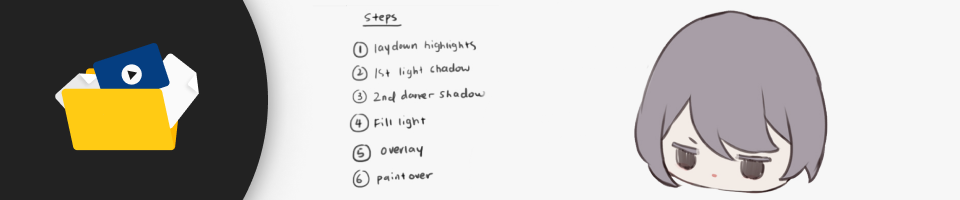 Steps
① laydown highlights
② 1st light chadow
③ 2nd darker shadow
④ Fill light
⑤ overlay
⑥ paint over